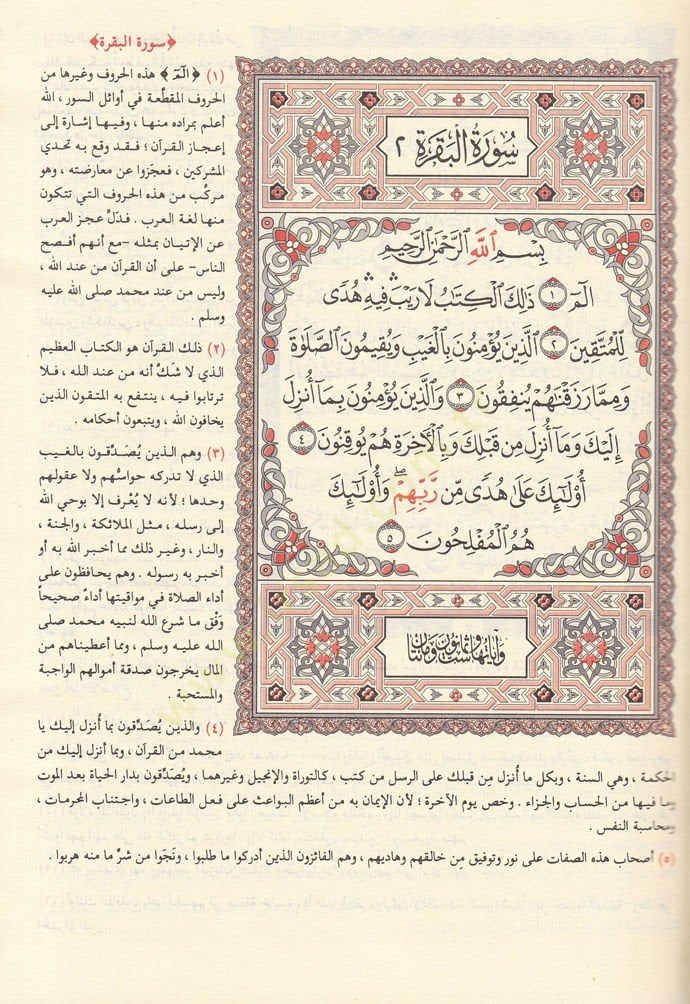 ﴿سورة البقرة﴾
سُورَةُ الْبَقَرَةِ ٢
بِسْمِ اللَّهِ الرَّحْمَٰنِ الرَّحِيمِ
الٓمٓ ١ ذَٰلِكَ الْكِتَابُ لَا رَيْبَ ۛ فِيهِ ۛ هُدًى
لِّلْمُتَّقِينَ ٢ الَّذِينَ يُؤْمِنُونَ بِالْغَيْبِ وَيُقِيمُونَ الصَّلَاةَ
وَمِمَّا رَزَقْنَاهُمْ يُنفِقُونَ ٣ وَالَّذِينَ يُؤْمِنُونَ بِمَا أُنزِلَ
إِلَيْكَ وَمَا أُنزِلَ مِن قَبْلِكَ وَبِالْآخِرَةِ هُمْ يُوقِنُونَ ٤
أُولَٰئِكَ عَلَىٰ هُدًى مِّن رَّبِّهِمْ ۖ وَأُولَٰئِكَ
هُمُ الْمُفْلِحُونَ ٥
وآياتها ست وثمانون ومائتان
(١) ﴿الٓمٓ﴾ هذه الحروف وغيرها من
الحروف المقطّعة في أوائل السور ، الله
أعلم بمراده منها ، وفيها إشارة إلى
إعجاز القرآن ؛ فقد وقع به تحدي
المشركين ، فعجَزوا عن معارضته ، وهو
مركَّب من هذه الحروف التي تتكون
منها لغة العرب . فدَلَّ عجز العرب
عن الإتيان بمثله -مع أنهم أفصح
الناس- على أن القرآن من عند الله ،
وليس من عند محمد صلى الله عليه
وسلم .
(٢) ذلك القرآن هو الكتاب العظيم
الذي لا شَكَّ أنه من عند الله ، فلا
ترتابوا فيه ، ينتفع به المتقون الذين
يخافون الله ، ويتبعون أحكامه .
(٣) وهم الذين يُصَدِّقون بالغيب
الذي لا تدركه حواسُّهم ولا عقولهم
وحدها ؛ لأنه لا يُعْرف إلا بوحي الله
إلى رسله ، مثل الملائكة ، والجنة ،
والنار ، وغير ذلك مما أخبر الله به أو
أخبر به رسوله . وهم يحافظون على
أداء الصلاة في مواقيتها أداءً صحيحاً
وَفْق ما شرع الله لنبيه محمد صلى
الله عليه وسلم ، ومما أعطيناهم من
المال يخرجون صدقة أموالهم الواجبة
والمستحبة .
(٤) والذين يُصَدِّقون بما أُنزل إليك يا
محمد من القرآن ، وبما أنزل إليك من
الحكمة ، وهي السنة ، وبكل ما أُنزل مِن قبلك على الرسل من كتب ، كالتوراة والإنجيل وغيرهما ، ويُصَدِّقون بدار الحياة بعد الموت
وما فيها من الحساب والجزاء . وخص يوم الآخرة ؛ لأن الإيمان به من أعظم البواعث على فعل الطاعات ، واجتناب المحرمات ،
ومحاسبة النفس .
(٥) أصحاب هذه الصفات على نور وتوفيق من خالقهم وهاديهم ، وهم الفائزون الذين أدركوا ما طلبوا ، ونَجَوا من شرِّ ما منه هربوا .